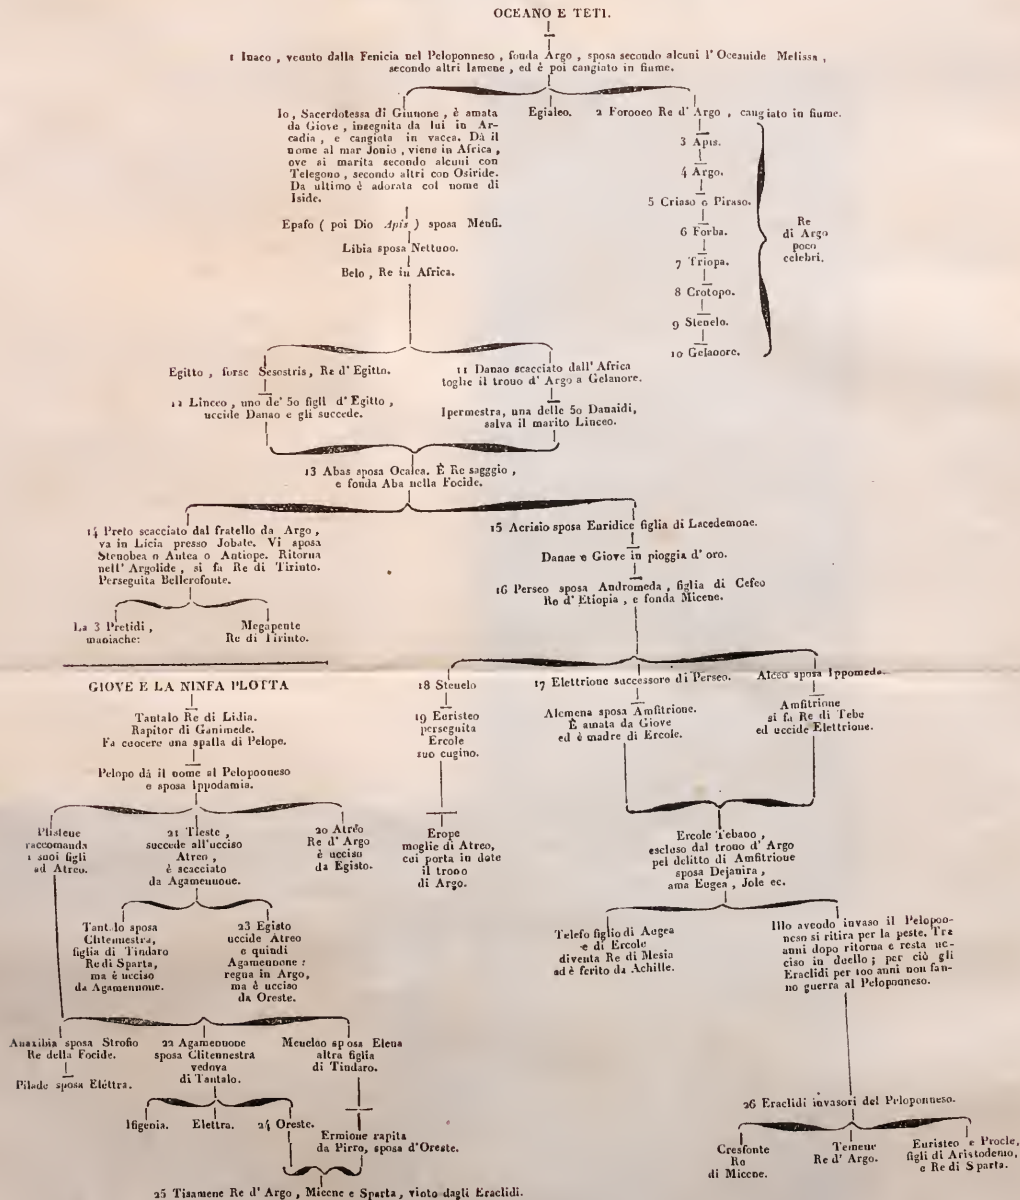 OCEANO E TETI.
1 Inaco , venuto dalla Fenicia nel Peloponneso , fonda Argo , sposa secondo alcuni l' Oceanide Melissa ,
secondo altri Ismene , ed è poi cangiato in fiume.
Io, Sacerdotessa di Giunone, è amata
da Giove, insegnita da lui in Ar-
cadia, e cangiata in vacca. Dà il
nome al mar Jonio, viene in Africa,
ove si marita secondo alcuni con
Telegono, secondo altri con Osiride.
Da ultimo è adorata col nome di
Iside.
Egialeo.
2 Foroneo Re d' Argo , cangiato in fiume.
3 Apis.
4 Argo.
5 Criaso o Piraso.
6 Forba.
7 Triopa.
8 Crotopo.
9 Stenelo.
10 Gelanore.
Re
di Argo
poco
celebri.
Epafo ( poi Dio Apis ) sposa Menfi.
Libia sposa Nettuno.
Belo , Re in Africa.
Egitto , forse Sesostris, Re d' Egitto.
12 Linceo, uno de' 50 figli d' Egitto ,
uccide Danao e gli succede.
11 Danao scacciato dall' Africa
toglie il trono d' Argo a Gelanore.
Ipermestra, una delle 50 Danaidi,
salva il marito Linceo.
13 Abas sposa Ocalea. È Re sagggio ,
e fonda Aba nella Focide.
14 Preto scacciato dal fratello da Argo ,
va in Licia presso Jobate. Vi sposa
Stenobea o Antea o Antiope. Ritorna
nell' Argolide , si fa Re di Tirinto.
Perseguita Bellerofonte.
La 3 Pretidi ,
maniache:
Megapente
Re di Tirinto.
15 Acrisio sposa Euridice figlia di Lacedemone.
Danae e Giove in pioggia d' oro.
16 Perseo sposa Andromeda , figlia di Cefeo
Re d' Etiopia , e fonda Micene.
18 Stenelo
19 Euristeo
perseguita
Ercole
suo cugino.
Erope
moglie di Atreo,
cui porta in dote
il trono
di Argo.
17 Elettrione successore di Perseo.
Alcmena sposa Amfitrione.
È amata da Giove
ed è madre di Ercole.
Alceo sposa Ippomede.
Amfitrione
si fa Re di Tebe
ed uccide Elettrione.
Ercole Tebano ,
escluso dal trono d' Argo
pel delitto di Amfitrione
sposa Dejanira ,
ama Eugea , Jole ec.
Telefo figlio di Augea
e di Ercole
diventa Re di Mesia
ed è ferito da Achille.
Illo avendo invaso il Pelopon-
neso si ritira per la peste. Tre
anni dopo ritorna e resta uc-
ciso in duello ; per ciò gli
Eraclidi per 100 anni non fan-
no guerra al Peloponneso.
26 Eraclidi invasori del Peloponneso.
Cresfonte
Re
di Micene.
Temene
Re d' Argo.
Euristeo e Procle,
figli di Aristodemo,
e Re di Sparta.
GIOVE E LA NINFA PLOTTA
Tantalo Re di Lidia.
Rapitor di Ganimede.
Fa cuocere una spalla di Pelope.
Pelope dà il nome al Peloponneso
e sposa Ippodamia.
Plistene
raccomanda
i suoi figli
ad Atreo.
21 Tieste ,
succede all'ucciso
Atreo ,
è scacciato
da Agamennone.
20 Atreo
Re d' Argo
è ucciso
da Egisto.
Tantalo sposa
Clitennestra,
figlia di Tindaro
Re di Sparta,
ma è ucciso
da Agamennone.
23 Egisto
uccide Atreo
e quindi
Agamennone :
regna in Argo,
ma è ucciso
da Oreste.
Anaxibia sposa Strofio
Re della Focide.
Pilade sposa Elettra.
22 Agamennone
sposa Clitennestra
vedova
di Tantalo.
Menelao sposa Elena
altra figlia
di Tindaro.
Ifigenia.
Elettra.
24 Oreste.
Ermione rapita
da Pirro, sposa d'Oreste.
25 Tisamene Re d' Argo , Micene e Sparta, vinto dagli Eraclidi.